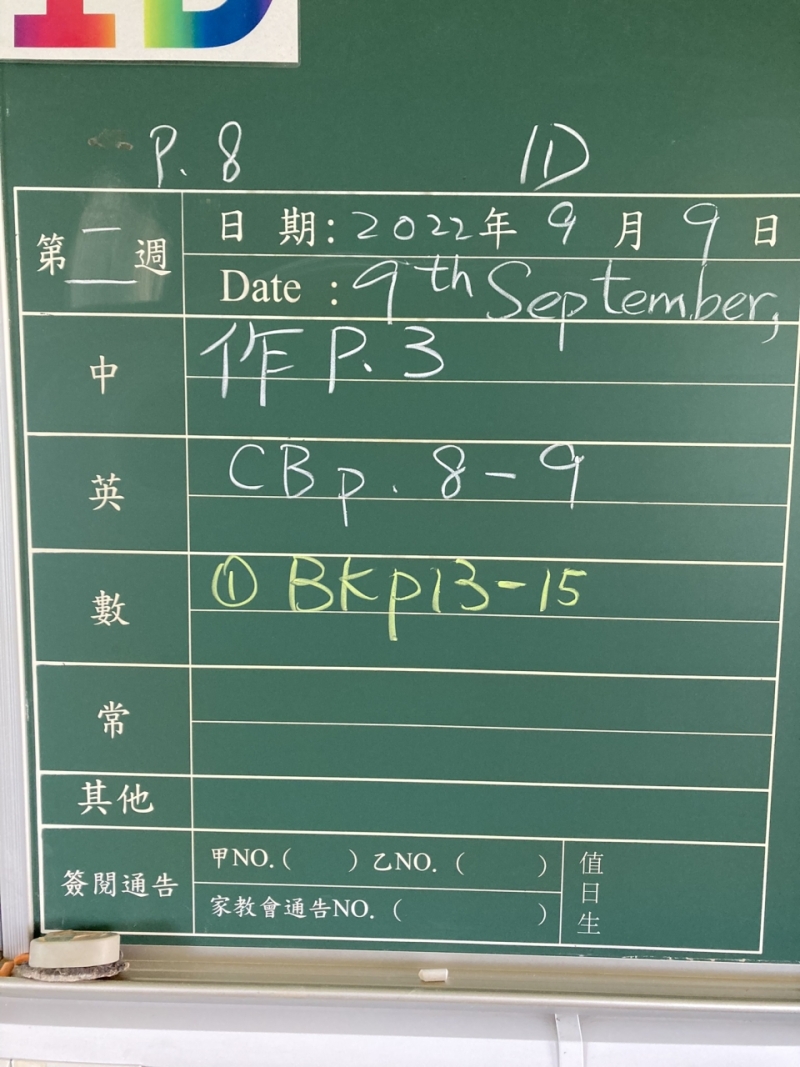 1D
P. 8 1D
第二週
日 期:2022年 9月 9日
Date :9th September,
中 作 P. 3
英 CB p. 8-9
數 ① BKp13-15
常
其他
簽閱通告 甲NO.( ) 乙NO. ( )
家教會通告NO. ( )
值日生